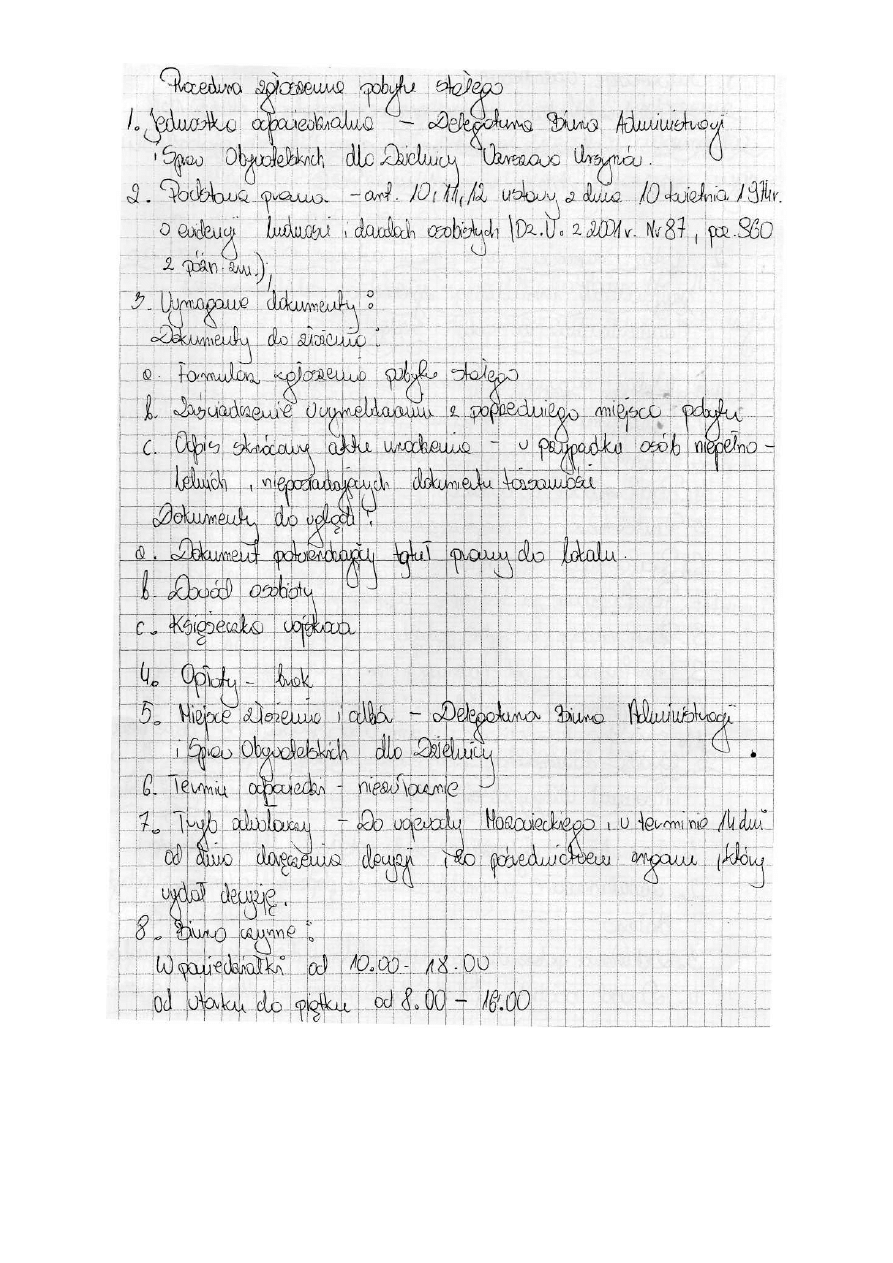 Procedura zgłoszenia pobytu stałego
1. Jednostka odpowiedzialna – Delegatura Biura Administracji
i Spraw Obywatelskich dla Dzielnicy Warszawa Ursynów.
2. Podstawa prawna – art. 10, 11, 12 ustawy z dnia 10 kwietnia 1974r.
o ewidencji ludności i dowodach osobistych (Dz.U. z 2001r. Nr 87, poz. 960
z późn. zm.),
3. Wymagane dokumenty:
Dokumenty do złożenia:
a. Formularz zgłoszenia pobytu stałego
b. Zaświadczenie o wymeldowaniu z poprzedniego miejsca pobytu
c. Odpis skrócony aktu urodzenia – w przypadku osób niepełno-
letnich, nieposiadających dokumentu tożsamości
Dokumenty do wglądu:
a. Dokument potwierdzający tytuł prawny do lokalu.
b. Dowód osobisty
c. Książeczka wojskowa
4. Opłaty – brak
5. Miejsce złożenia i odbiór – Delegatura Biura Administracji
i Spraw Obywatelskich dla Dzielnicy
6. Termin odpowiedzi – niezwłocznie
7. Tryb odwoławczy – Do wojewody Mazowieckiego, w terminie 14 dni
od dnia doręczenia decyzji za pośrednictwem organu, który
wydał decyzję.
8. Biuro czynne:
W poniedziałki od 10.00 – 18.00
od wtorku do piątku od 8.00 – 16.00